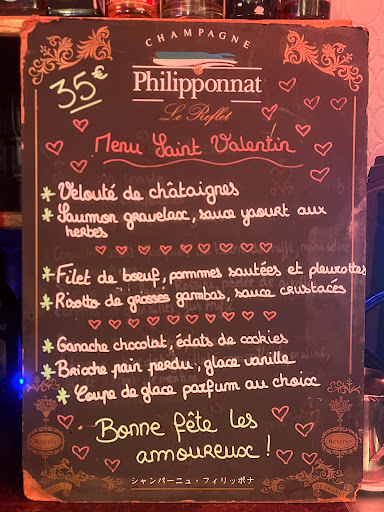 CHAMPAGNE
35€
Philipponnat
Le Reflet
Menu Saint Valentin
* Velouté de châtaignes
* Saumon gravelax, sauce yaourt aux
herbes
* Filet de boeuf, pommes sautées et pleurottes
* Risotto de grosses gambas, sauce crustacés
* Ganache chocolat, éclats de cookies
* Brioche pain perdu, glace vanille
* Coupe de glace parfum au choix
Bonne fête les
amoureux !
Royale
Réserve
シャンパーニュ・フィリッポナ